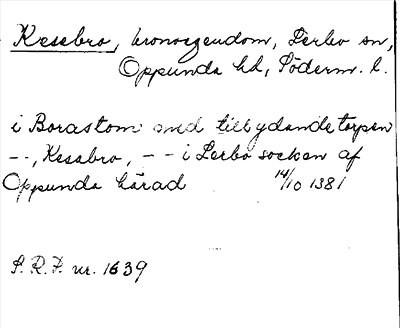 Kesebro, kronoegendom, Lerbo sn,
Oppunda hd, Söderm. l.
i Borastom med tillydande torpen
--, Kesabro, -- i Lerbo socken af
Oppunda härad 14/10 1381
S.R.P. nr. 1639